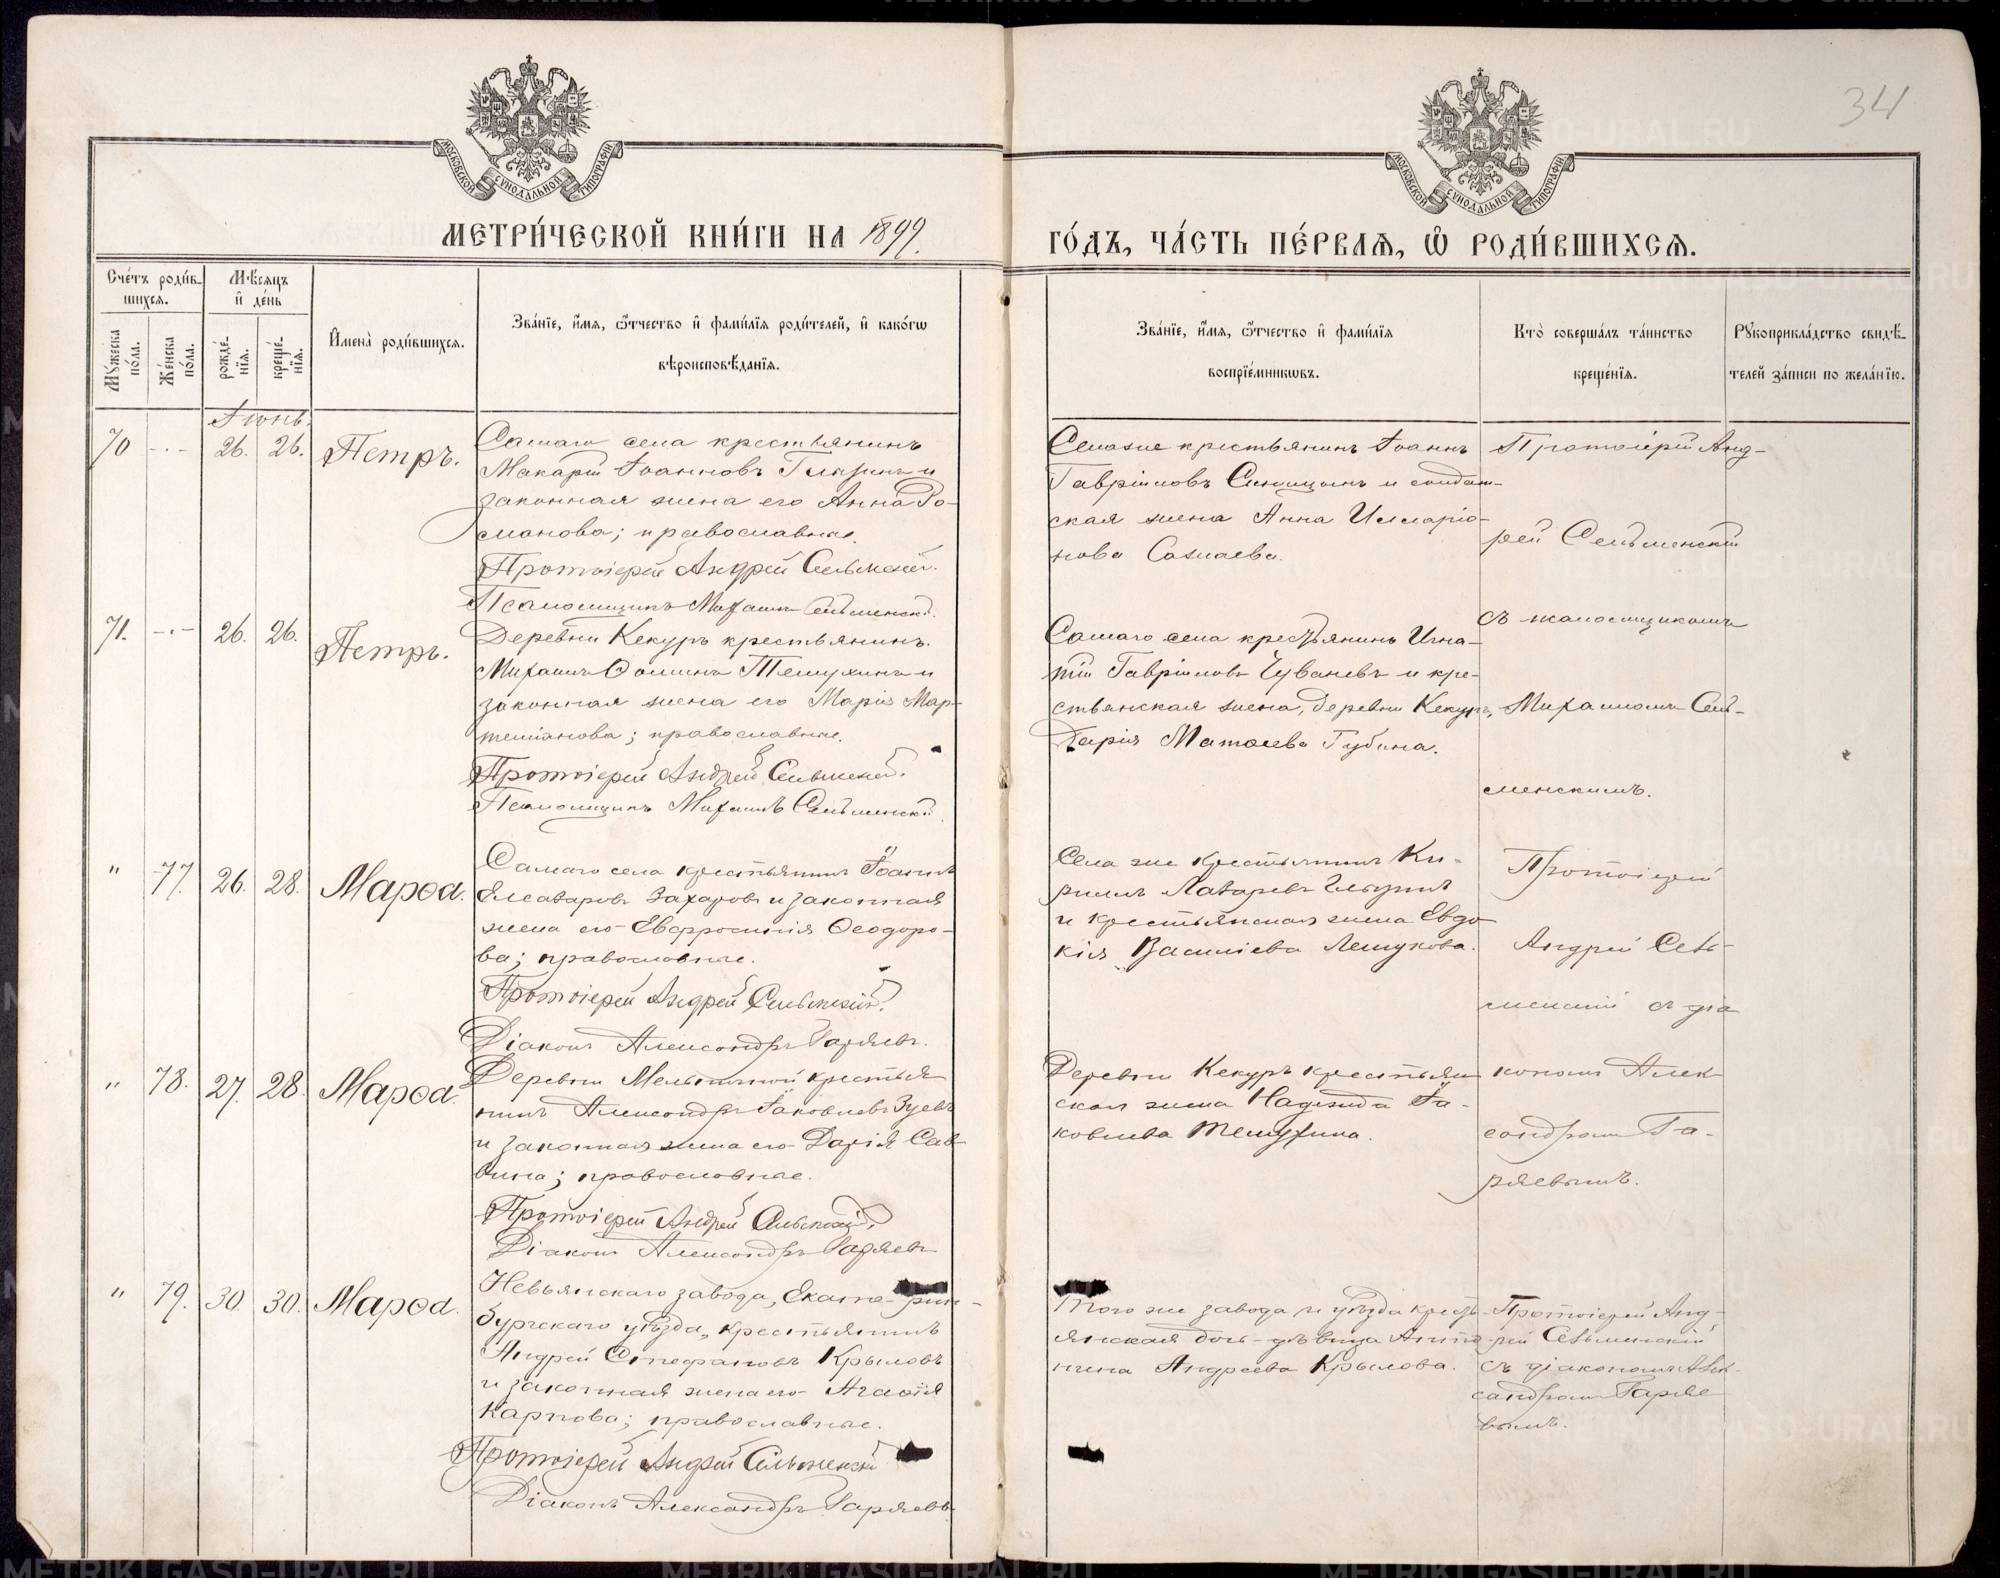 34
МОСКОВСКОЙ СУНОДАЛЬНОЙ ТИПОГРАФІИ
МОСКОВСКОЙ СУНОДАЛЬНОЙ ТИПОГРАФІИ
МЕТРИ́ЧЕСКОЙ КНИ́ГИ НА 1899.
ГО́ДЪ, ЧА́СТЬ ПЕ́РВАѦ, Ѽ РОДИ́ВШИХСѦ.
Сче́тъ роди́в-
шихсѧ.
Мѣ́сѧцъ
и҆ де́нь
Мꙋ́жеска по́ла.
Же́нска по́ла.
рожде́-нїѧ.
креще́-нїѧ.
И҆мена̀ роди́вшихсѧ.
Зва́нїе, и҆́мѧ, ѻ҆́тчество и҆ фами́лїѧ роди́телей, и҆ како́гѡ
вѣроисповѣ́данїѧ.
Зва́нїе, и҆́мѧ, ѻ҆́тчество и҆ фами́лїѧ
воспрїе́мникѡвъ.
Кто̀ соверша́лъ та́инство
креще́нїѧ.
Рꙋкоприкла́дство свидѣ́-
телей за́писи по жела́нїю.
Іюнь.
70 -·- 26. 26. Петръ.
Самаго села крестьянинъ
Макарій Іоанновъ и
законная жена его Анна Ро-
манова; православные.
Протоіерей Андрей Сельменскій.
Псаломщикъ Михаилъ Сельменскій.
Села же крестьянинъ Іоаннъ
Гавріиловъ Синицынъ и солдат-
ская жена Анна Илларіо-
нова
Протоіерей Анд-
рей Сельменскій
съ псаломщикомъ
Михаиломъ Сель-
менскимъ.
71. -·- 26. 26. Петръ.
Деревни Кекуръ крестьянинъ
Михаилъ Телухинъ и
законная жена его Марія Мар-
теміанова; православные.
Протоіерей Андрей Сельменскій.
Псаломщикъ Михаилъ Сельменскій.
Самаго села крестьянинъ Игна-
тій Гавріиловъ Чувашевъ и кре-
стьянская жена, деревни Кекуръ,
Дарія Матѳеева Губина.
" 77. 26. 28. Марѳа.
Самаго села крестьянинъ Іоаннъ
Елеазаровъ Захаровъ и законная
жена его Евфросинія Ѳеодоро-
ва; православные.
Протоіерей Андрей Сельменскій.
Діаконъ Александръ Гаряевъ.
Села же крестьянинъ Ки-
риллъ Лазаревъ
и крестьянская жена Евдо-
кія Василіева Лешукова.
Протоіерей
Андрей Сель-
менскій съ діа
кономъ Алек
сандромъ Га-
ряевымъ.
" 78. 27. 28. Марѳа.
Деревни Мельничной крестья
нинъ Александръ Іаковлевъ Зуевъ
и законная жена его Дарія Сав
вина; православные.
Протоіерей Андрей Сельменскій.
Діаконъ Александръ Гаряевъ
Деревни Кекуръ крестьян
ская жена Надежда Іа-
ковлева Телухина.
" 79. 30. 30. Марѳа.
Невьянскаго завода, Екатерин-
бургскаго уѣзда, крестьянинъ
Андрей Стефановъ Крыловъ
и законная жена его Агаѳія
Карпова; православные.
Протоіерей Андрей Сельменскій
Діаконъ Александръ Гаряевъ
Того же завода и уѣзда кресть-
янская дочь - дѣвица Анто
нина Андреева Крылова.
Протоіерей Анд-
рей Сельменскій
съ діакономъ Алек-
сандромъ Гаряе
вымъ.
METRIKI.GASO-URAL.RU